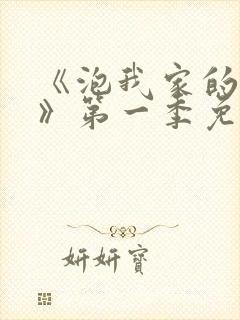 《泡我家的
》第一季免
妍妍寶